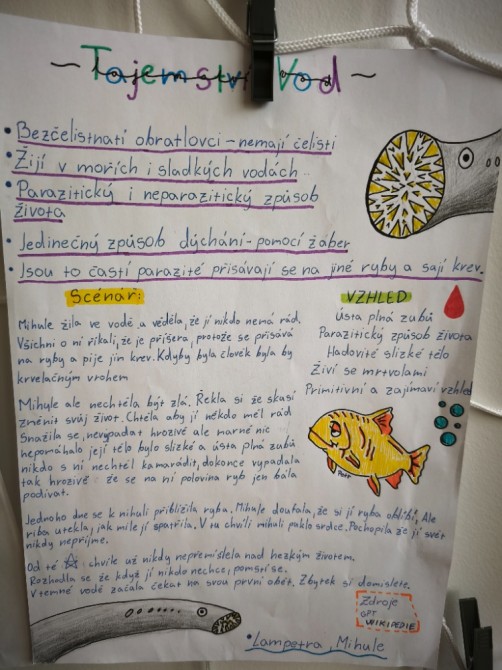 ~ Tajemství Vod ~
• Bezčelistnatí obratlovci – nemají čelisti
• Žijí v mořích i sladkých vodách
• Parazitický i neparazitický způsob
života
• Jedinečný způsob dýchání – pomocí žaber
• Jsou to častí parazité přisávají se na jiné ryby a sají krev.
Scénář:
Mihule žila ve vodě a věděla, že jí nikdo nemá rád.
Všichni o ní říkali, že je příšera, protože se přisává
na ryby a pije jim krev. Kdyby byla člověk byla by
krvelačným vrahem
Mihule ale nechtěla být zlá. Řekla si že skusí
změnit svůj život. Chtěla aby jí někdo měl rád
Snažila se, nevypadat hrozivě ale marně nic
nepomáhalo její tělo bylo slizké a ústa plná zubů
nikdo s ní nechtěl kamarádit, dokonce vypadala
tak hrozivě že se na ní polovina ryb jen bála
podívat.
Jednoho dne se k mihuli přiblížila ryba. Mihule doufala, že si jí ryba oblíbí, Ale
riba utekla, jak mile jí spatřila. V tu chvíli mihuli puklo srdce. Pochopila že jí svět
nikdy nepříjme.
Od té chvíle už nikdy nepřemíšlela nad hezkým životem.
Rozhodla se že když jí nikdo nechce, pomstí se.
V temné vodě začala čekat na svou první oběť. Zbytek si domislete.
VZHLED
ústa plná zubů
Parazitický způsob života
Hadovité slizké tělo
Živí se mrtvolami
Primitivní a zajímaví vzhled
Zdroje
GPT
WIKIPEDIE
• Lampetra, Mihule